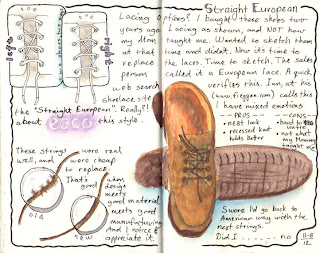 Straight European
Lacing Options? I bought these shoes two
years ago Lacing as shown, and NOT how
my Mom taught me. Wanted to sketch them
at that time and didn't. Now it's time to
replace the laces. Time to sketch. The sales
person called it a European lace. A quick
web search verifies this. Ian, at his
shoelace site (www.fieggen.com) calls this
the "Straight European". Really?! I have mixed emotions
about this style.
left
right
PROS
• neat look
• recessed knot
holds better
CONS
• hard to
untie
• not what
my Mommy
taught me
These strings were real
well, and were cheap
to replace.
That's when
good design
meets
good material
meets good
manufacturing
And I notice &
appreciate it.
old
new
Swore I'd go back to
American way with the
next strings.
Did I ...... no
11-8
12